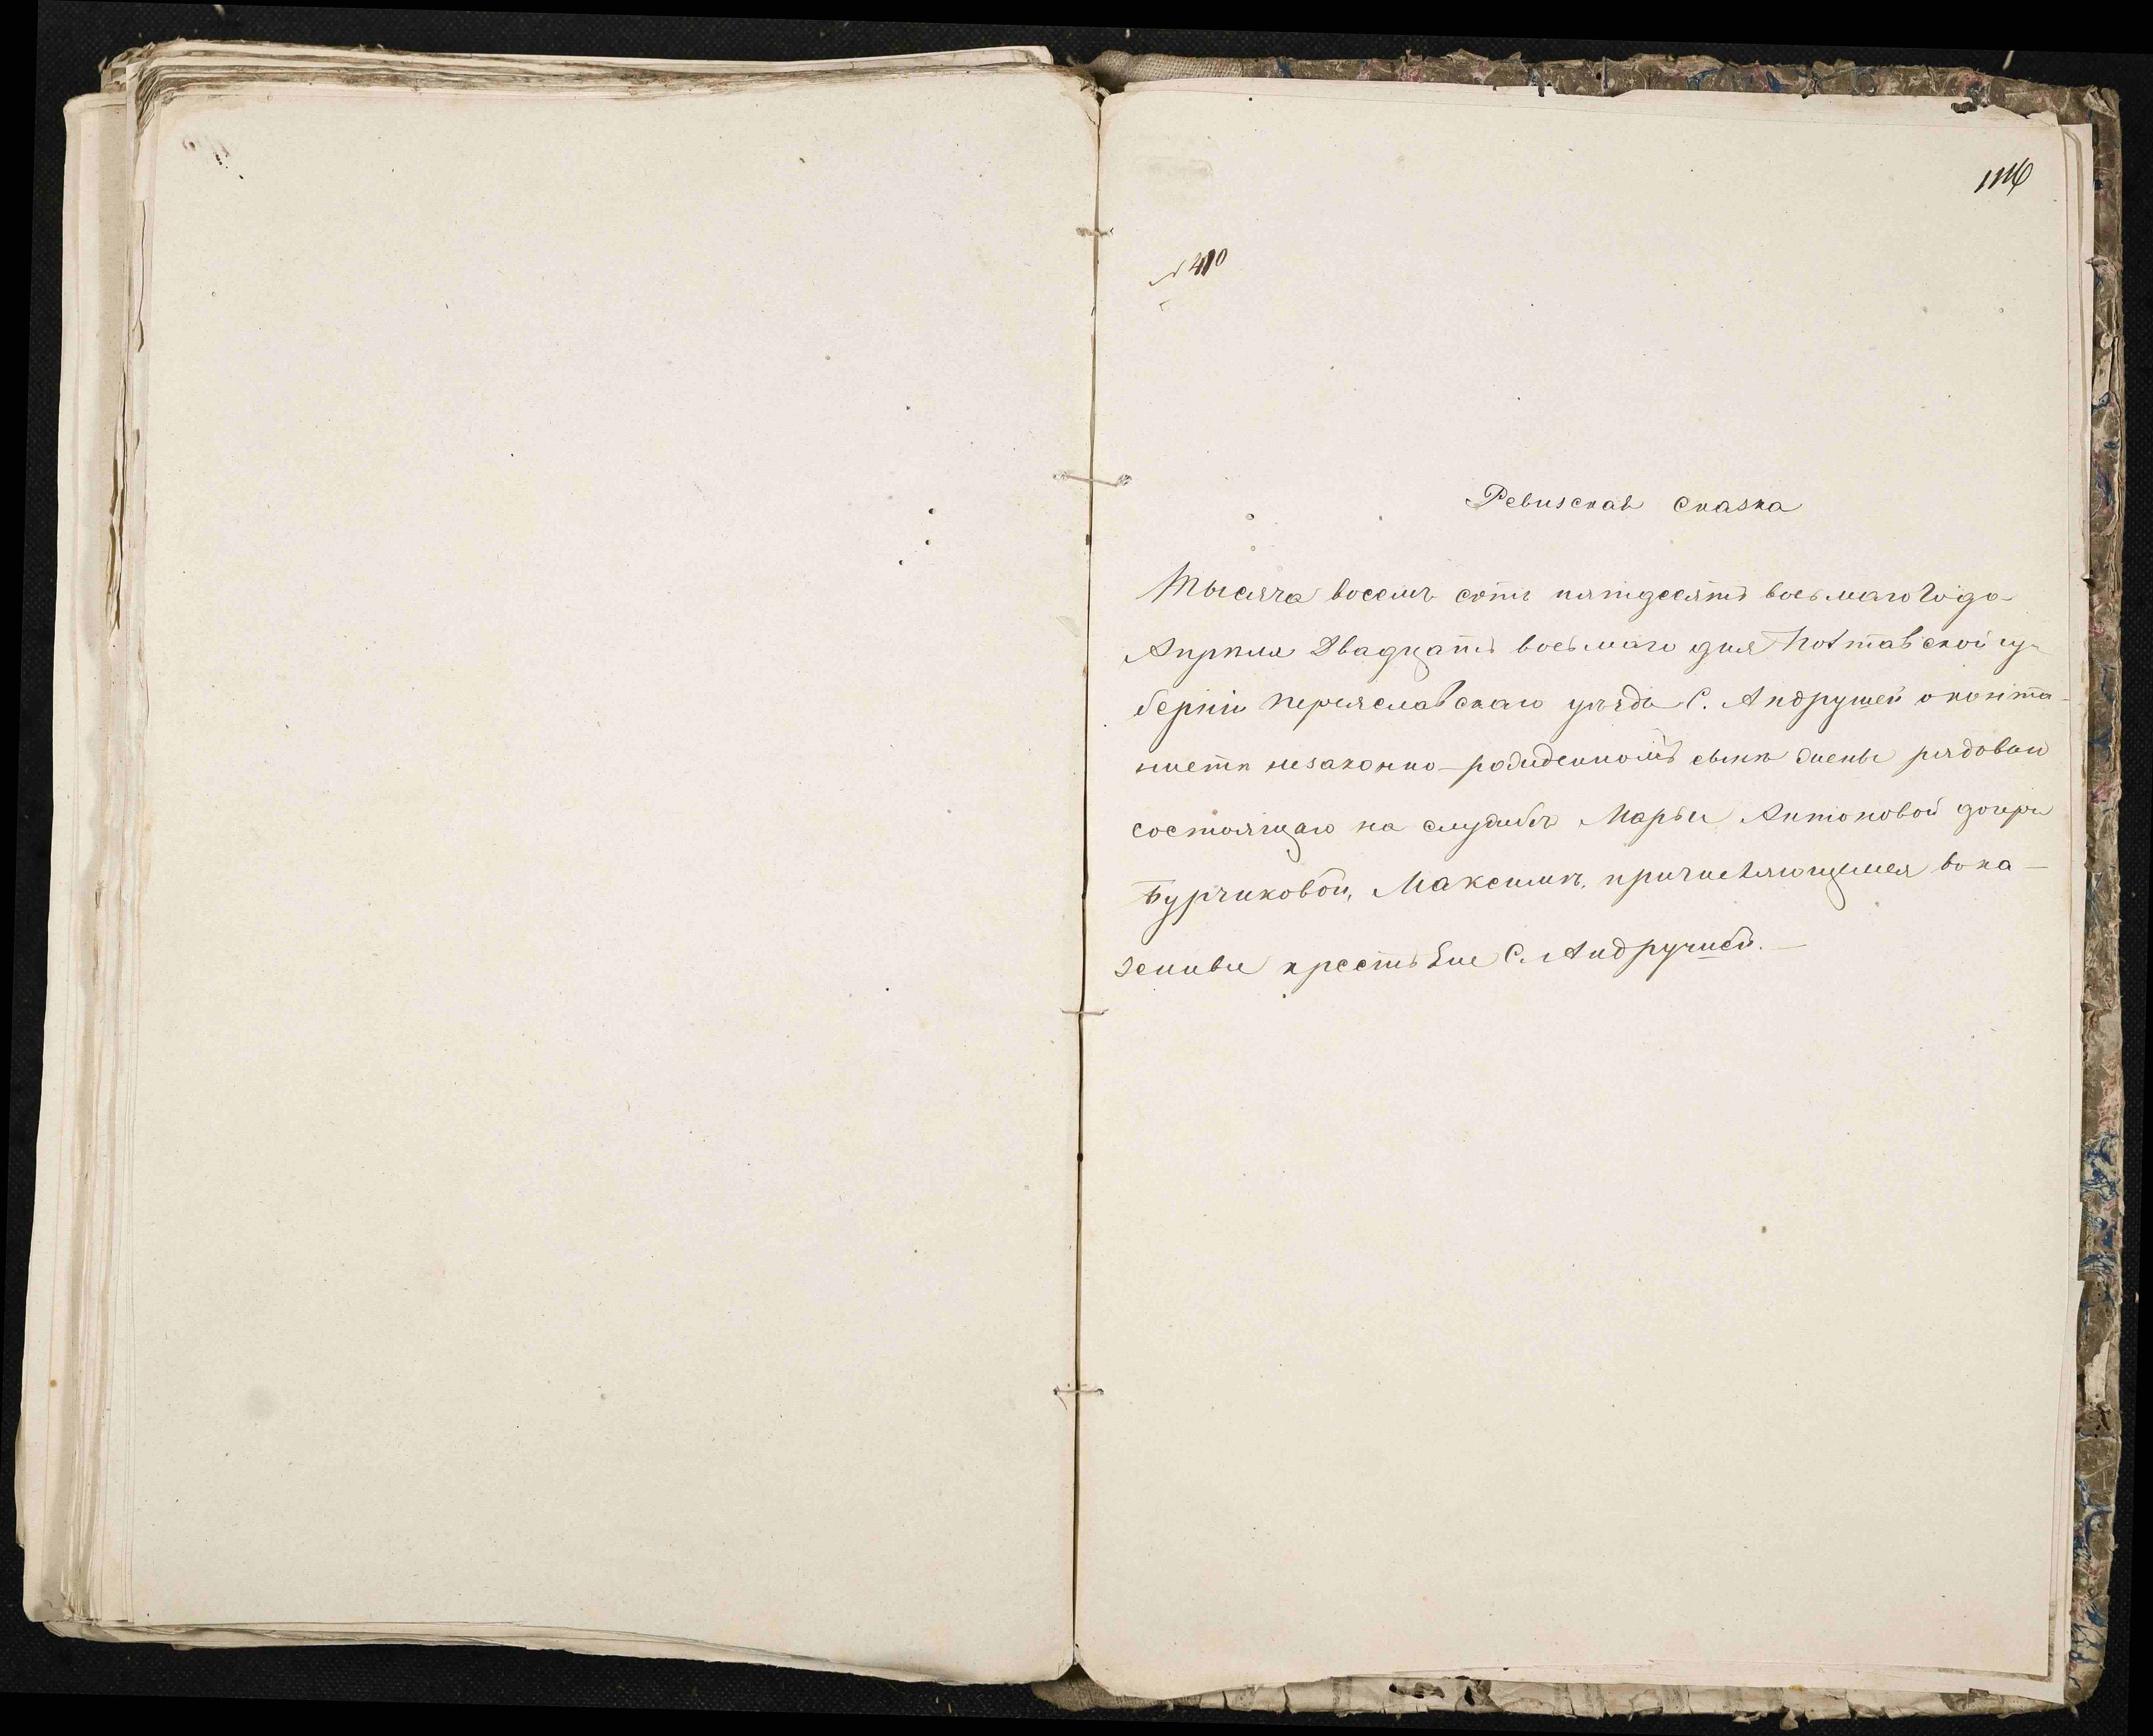 1116
№ 410
Ревизская Сказка
Тысяча восемь сотъ пятдесятъ восьмаго года
Апрѣля Двадцать восьмаго дня Полтавской гу-
берніи Переяславскаго уѣзда С. Андрушей о кантo-
нистѣ незаконно-рожденномъ сынѣ жены рядоваго
состоящаго на службѣ Марьи Антоновой дочери
Бурчиковой, Максимѣ, причисляющемся вока-
зенные крестьяне С. Андрушей.—